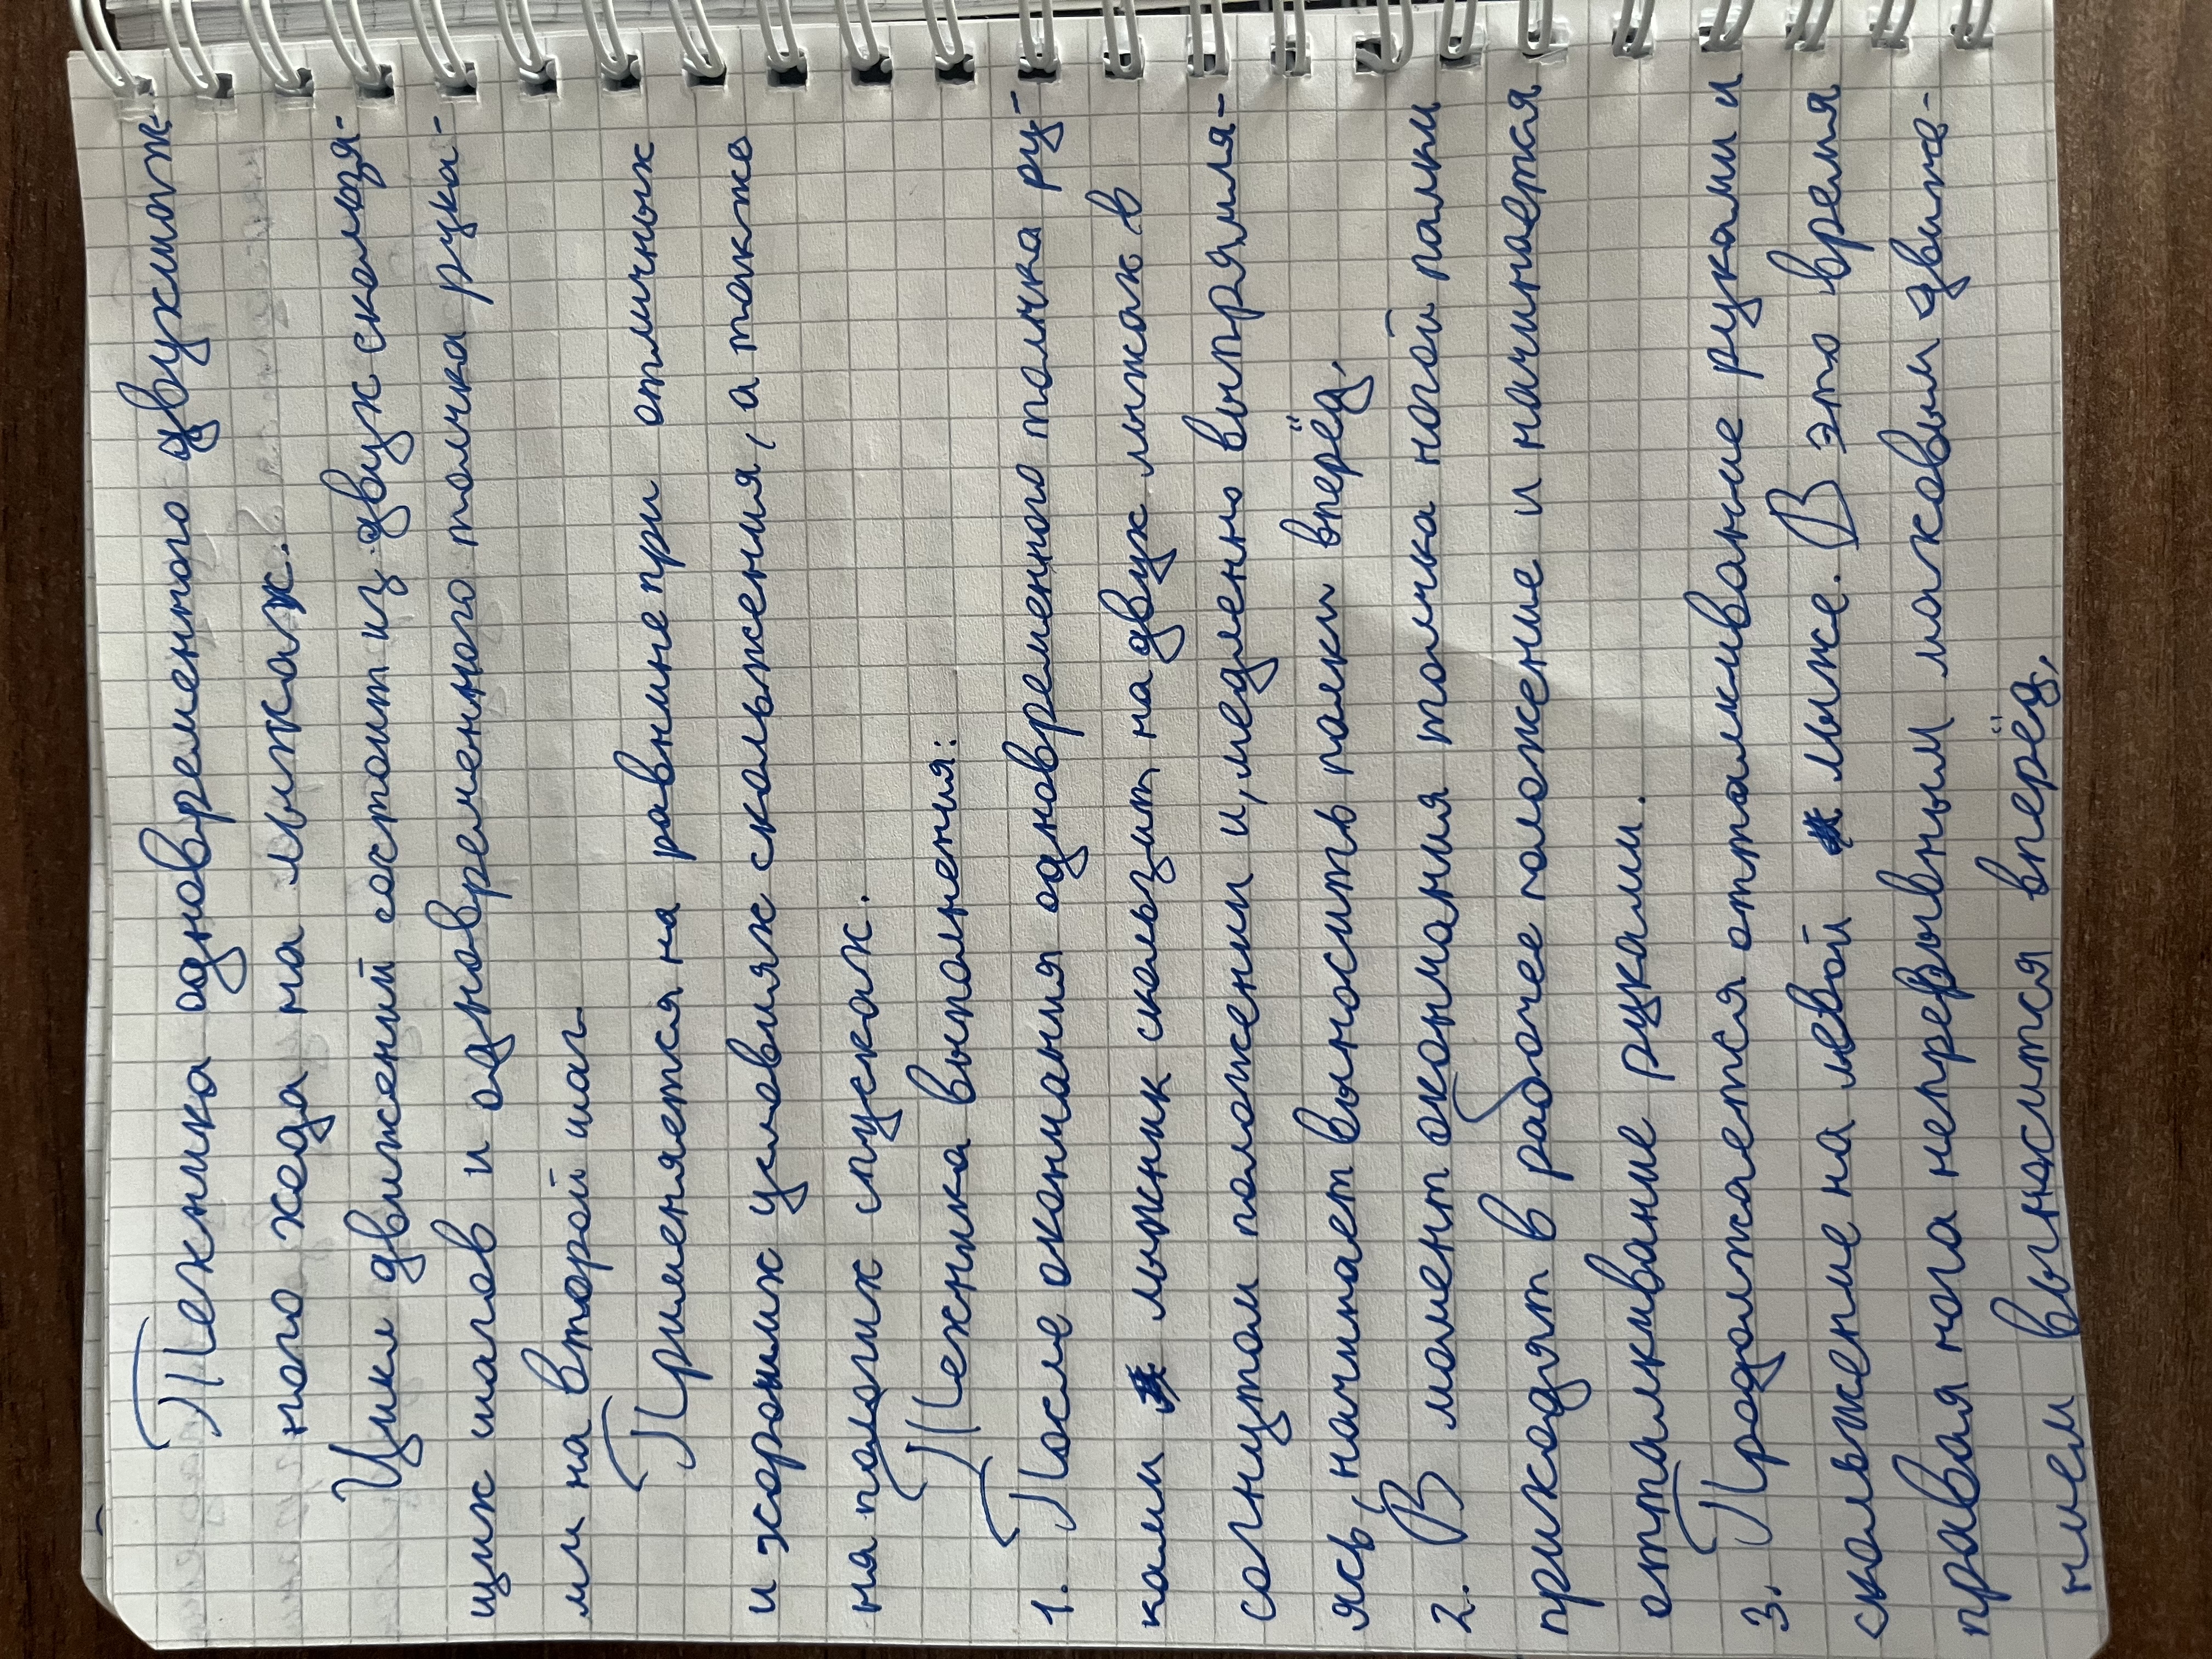 Техника одновременного двухшаж-
ного хода на лыжах.
Цикл движений состоит из двух скользя-
щих шагов и одновременного толчка рука-
ми на второй шаг.
Применяется на равнине при отличных
и хороших условиях скольжения, а также
на пологих спусках.
Техника выполнения:
1. После окончания одновременного толчка ру-
ками лыжник скользит на двух лыжах в
согнутом положении и, медленно выпрямля-
ясь, начинает выносить палки вперёд.
2. В момент окончания толчка ногой палки
приходят в рабочее положение и начинается
отталкивание руками.
3. Продолжается отталкивание руками и
скольжение на левой лыже. В это время
правая нога непрерывным маховым движе-
нием выносится вперёд.